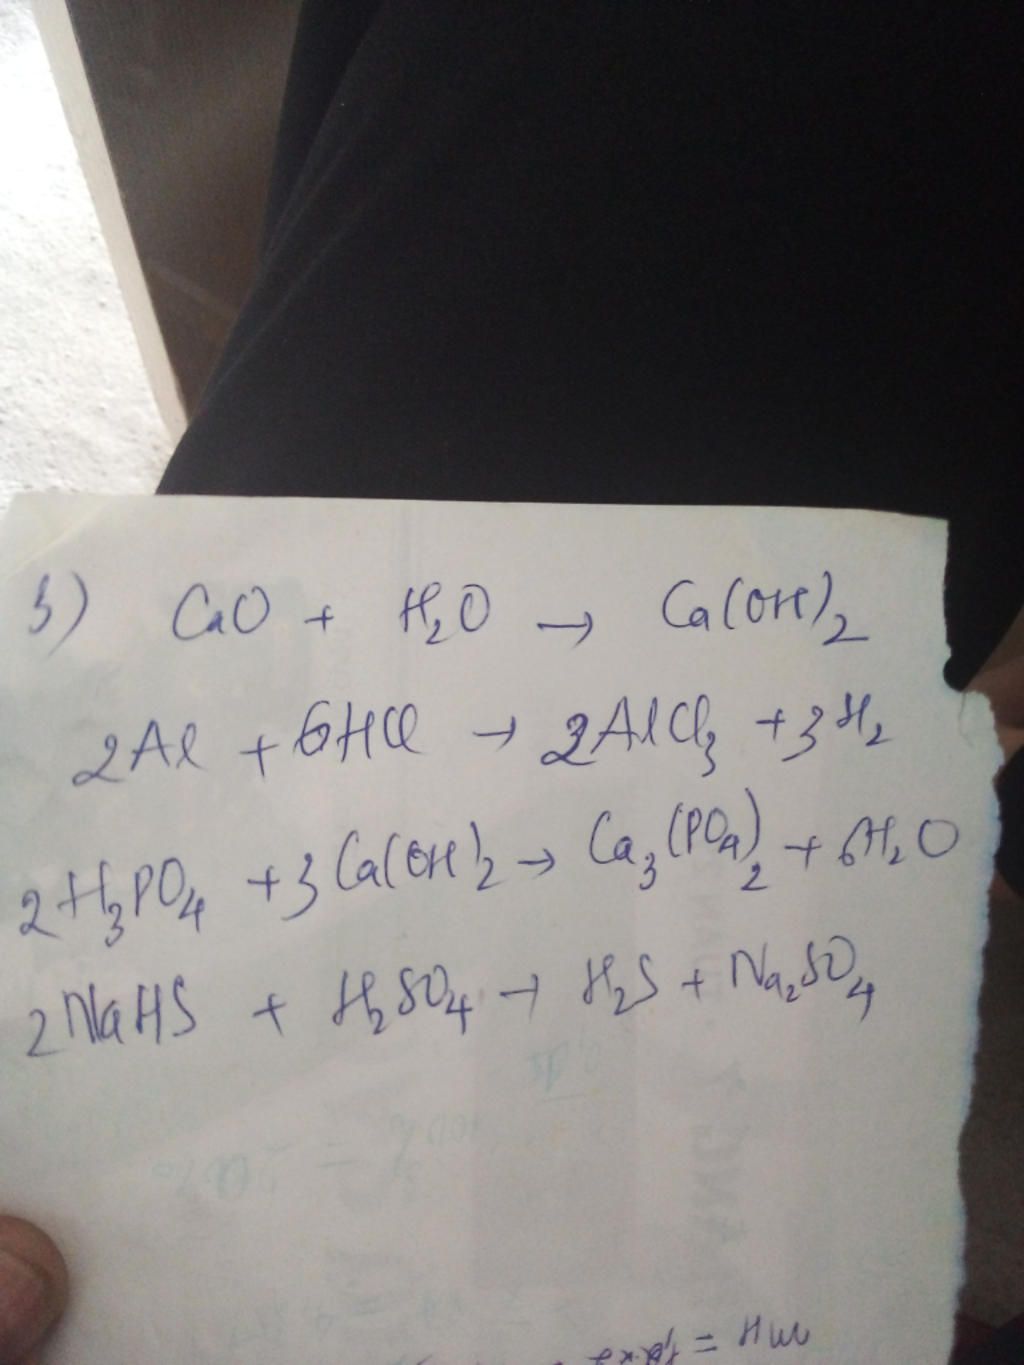 3) CaO + H₂O → Ca(OH)₂
2Al + 6HCl → 2AlCl₃ + 3H₂
2H₃PO₄ + 3Ca(OH)₂ → Ca₃(PO₄)₂ + 6H₂O
2NaHS + H₂SO₄ → H₂S + Na₂SO₄